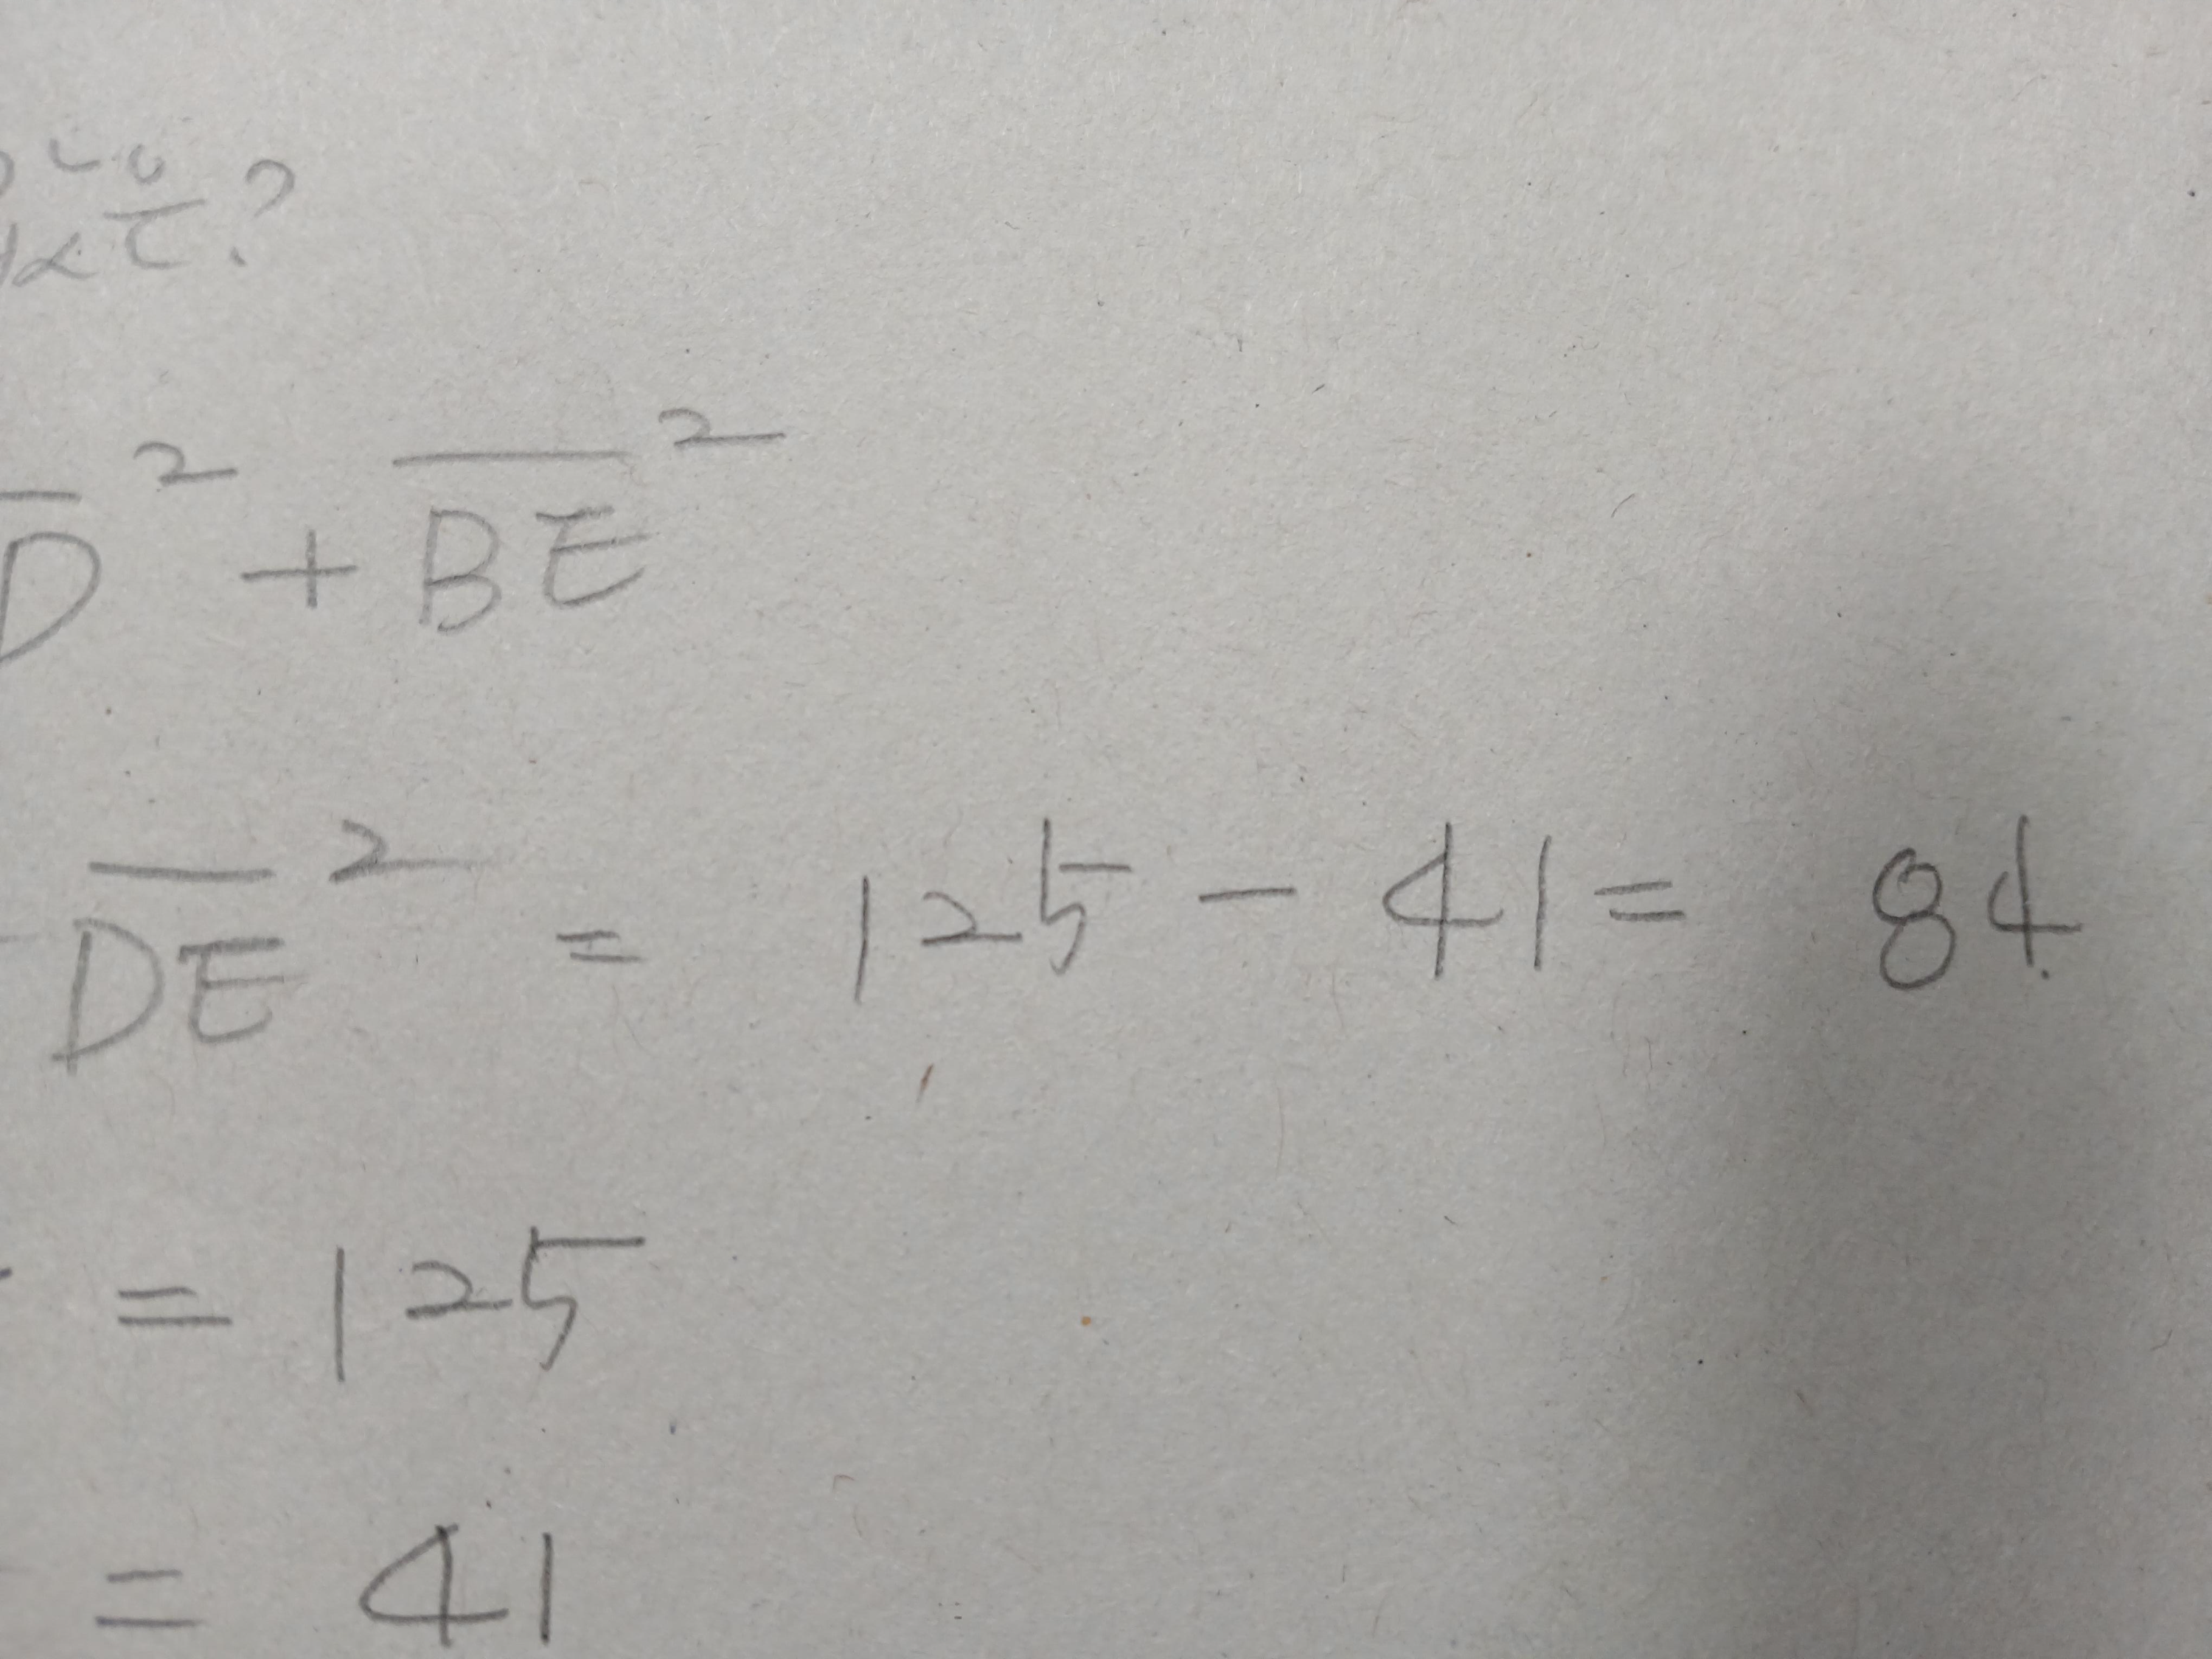 ?
D̅² + B̅E̅²
D̅E̅² = 125 - 41 = 84
= 125
= 41